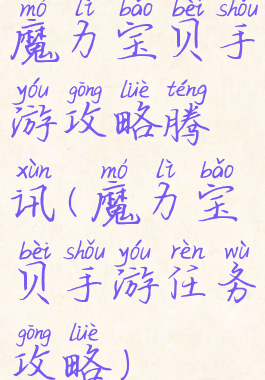 mó lì bǎo bèi shǒu
魔力宝贝手
yóu gōng lüè téng
游攻略腾
xùn mó lì bǎo
讯(魔力宝
bèi shǒu yóu rèn wù
贝手游任务
gōng lüè
攻略)